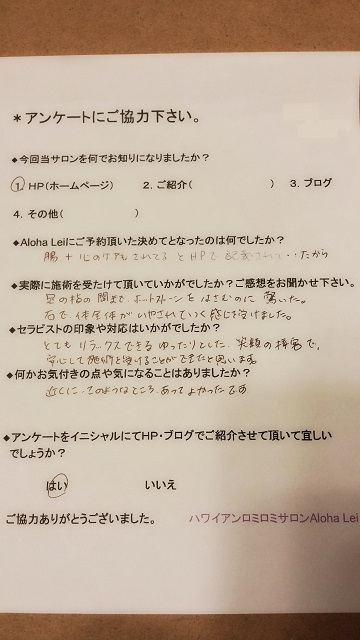 ＊アンケートにご協力下さい。
◆今回当サロンを何でお知りになりましたか？
1. HP(ホームページ)　2. ご紹介(　　　)　3. ブログ
4. その他(　　　)
◆Aloha Leiにご予約頂いた決めてとなったのは何でしたか？
腸＋心のケアもされてる とHPで 記載されて‥たから
◆実際に施術を受けて頂いていかがでしたか？ご感想をお聞かせ下さい。
足の指の間まで、ホットストーンをはさむのに 驚いた。
石で、体全体がいやされていく感じを受けました。
◆セラピストの印象や対応はいかがでしたか？
とても リラックスできる ゆったりとした、笑顔の接客で、
安心して施術を受けることができたと思います。
◆何かお気付きの点や気になることはありましたか？
近くに、このようなところ、あって よかったです
◆アンケートをイニシャルにてHP・ブログでご紹介させて頂いて宜しい
でしょうか？
はい　　　いいえ
ご協力ありがとうございました。　ハワイアンロミロミサロンAloha Lei